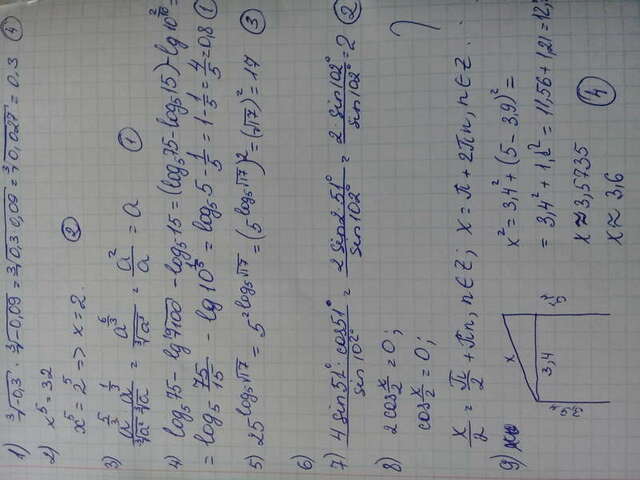 1) ∛-0,3 · ∛-0,09 = ∛0,3·0,09 = ∛0,027 = 0,3 (4)
2) x⁵ = 32
x⁵ = 2⁵ => x = 2. (2)
3) a^(5/3) a^(1/3) / ∛a² ∛a = a^(6/3) / ∛a³ = a²/a = a (1)
4) log₅75 - lg ⁵√100 - log₅15 = (log₅75 - log₅15) - lg10^(2/10) =
= log₅ 75/15 - lg10^(1/5) = log₅5 - 1/5 = 1 - 1/5 = 4/5 = 0,8 (1)
5) 25^(log₅√17) = 5^(2log₅√17) = (5^(log₅√17))² = (√17)² = 17 (3)
6)
7) 4 sin51°·cos51° / sin102° = 2 sin2·51° / sin102° = 2·sin102° / sin102° = 2 (2)
8) 2cos x/2 = 0;
cos x/2 = 0;
x/2 = π/2 + πn, n∈Z; x = π + 2πn, n∈Z.
9)
x
3,4
3,9
x² = 3,4² + (5 - 3,9)² =
= 3,4² + 1,1² = 11,56 + 1,21 = 12,
x ≈ 3,5735
x ≈ 3,6 (4)